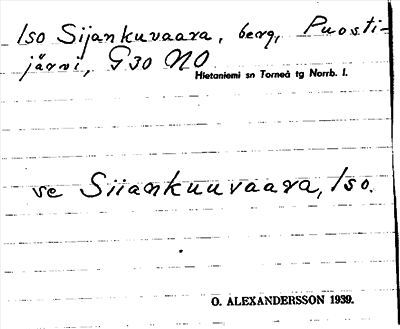 Iso Sijankuvaara, berg, Puosti-
järvi, G30 NO
Hietaniemi sn Torneå tg Norrb. l.
se Siiankuuvaara, Iso.
O. ALEXANDERSSON 1939.